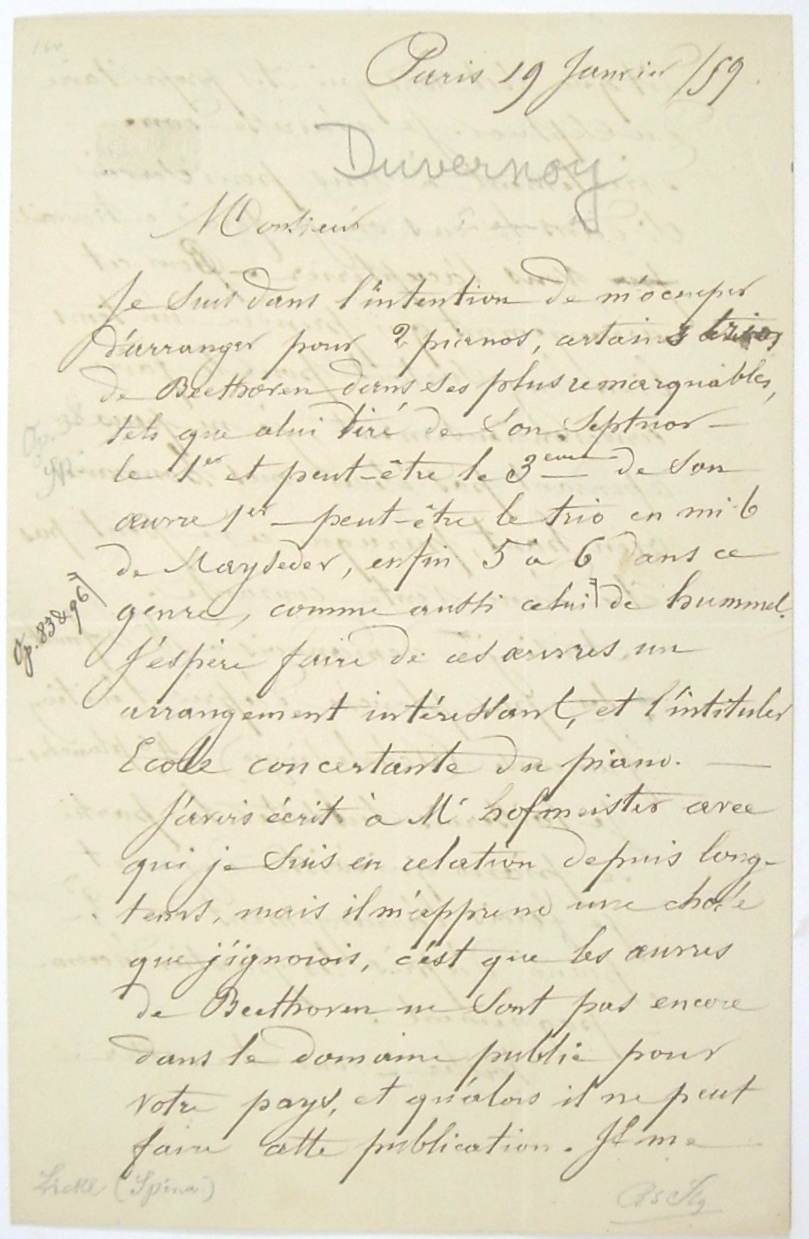 Paris 19 Janvier /59.
Duvernoy
Monsieur
Je suis dans l'intention de m'occuper
d'arranger pour 2 pianos, certains trios
de Beethoven dans ses plus remarquables,
tels que celui tiré de son Septuor –
le 1er et peut-être le 3eme de son
œuvre 1er – peut-être le trio en mi b
de Mayseder, enfin 5 à 6 dans ce
genre, comme aussi celui de hummel.
Op. 83 & 96
J'espère faire de ces œuvres un
arrangement intéressant, et l'intituler
Ecole concertante du piano. —
J'avois écrit à Mr hofmeister avec
qui je suis en relation depuis long-
tems, mais il m'apprend une chose
que j'ignorois, c'est que les œuvres
de Beethoven ne sont pas encore
dans le domaine public pour
votre pays, et qu'alors il ne peut
faire cette publication. Il me
(Spina)